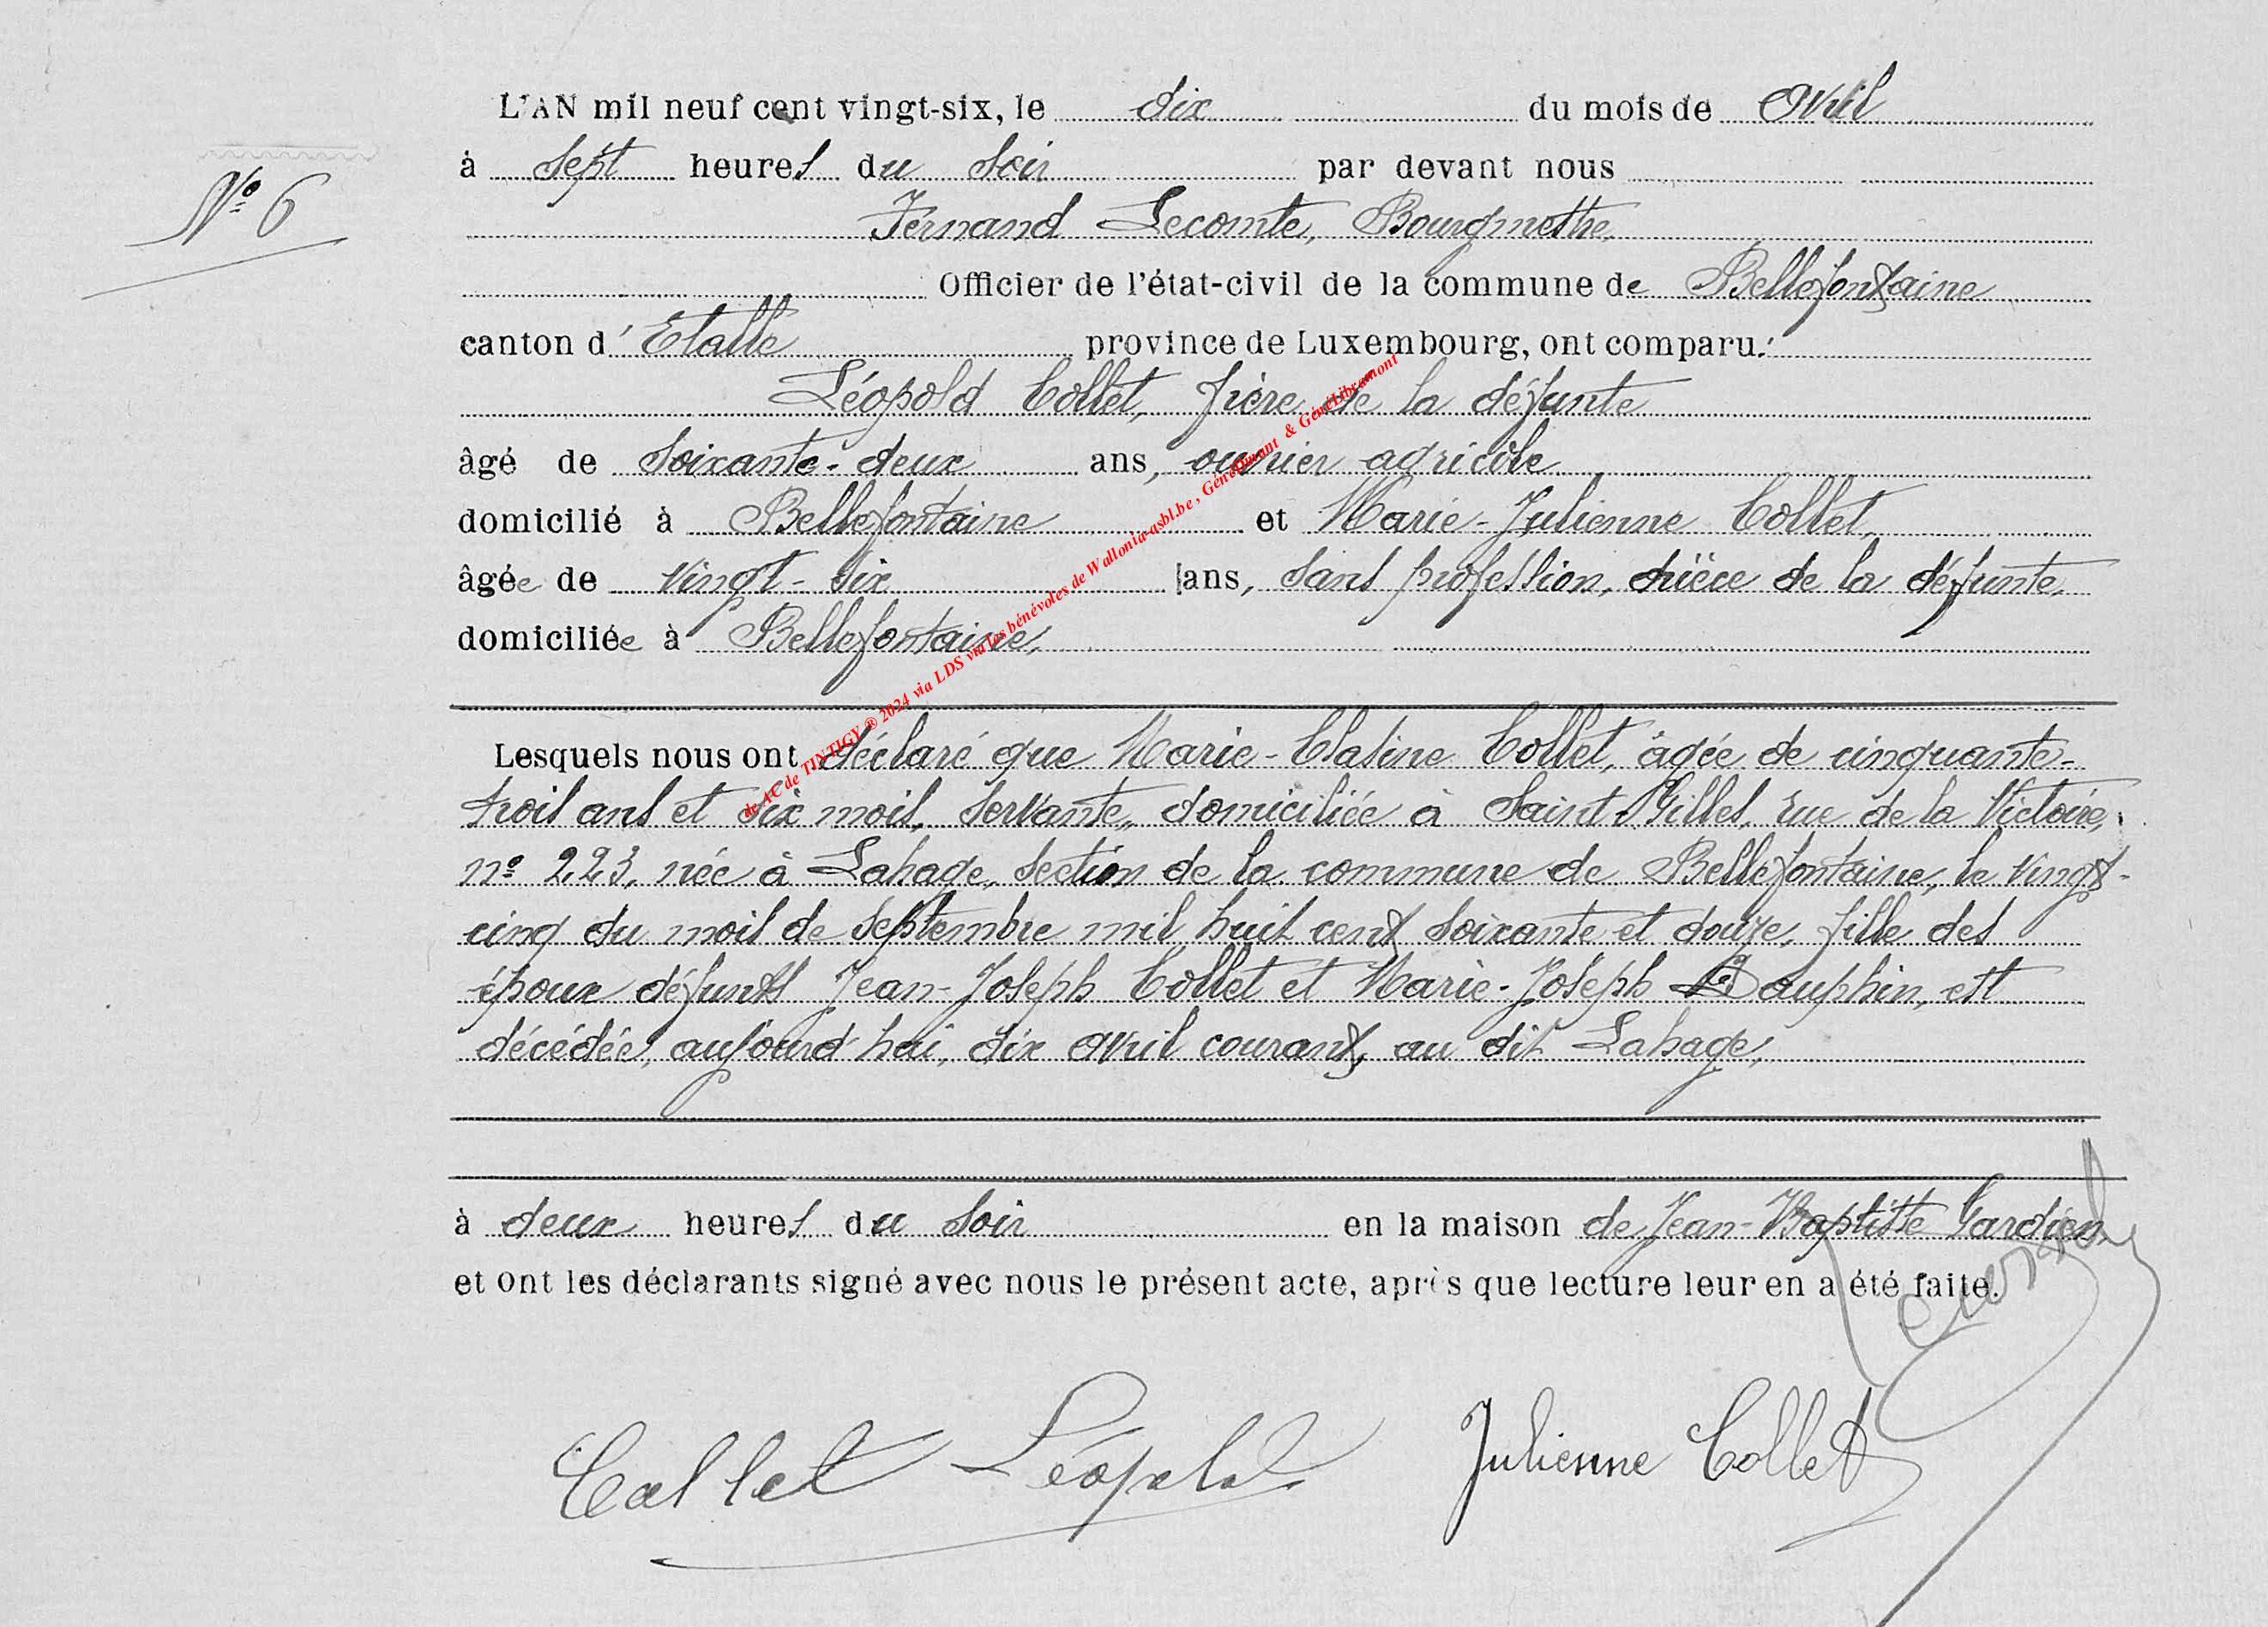 L'AN mil neuf cent vingt-six, le dix du mois de Avril
à sept heures du soir par devant nous
N° 6
Fernand Lecomte, Bourgmestre,
Officier de l'état-civil de la commune de Bellefontaine
canton d' Etalle province de Luxembourg, ont comparu :
Léopold Collet, frère de la défunte
âgé de soixante-deux ans, ouvrier agricole
domicilié à Bellefontaine et Marie-Julienne Collet,
âgée de vingt-six ans, sans profession, nièce de la défunte,
domiciliée à Bellefontaine,
de AC de TINTIGY ® 2024 via LDS via les bénévoles de Wallonia-asbl.be , GénéDinant & GénéLibramont
Lesquels nous ont déclaré que Marie-Clasine Collet, âgée de cinquante-
trois ans et six mois, servante, domiciliée à Saint-Gilles, rue de la Victoire,
n° 223, née à Lahage, section de la commune de Bellefontaine, le vingt-
cinq du mois de septembre mil huit cent soixante et douze, fille des
époux défunts Jean-Joseph Collet et Marie-Joseph Dauphin, est
décédée, aujourd'hui, dix avril courant, au dit Lahage,
à deux heures du soir en la maison de Jean-Baptiste Gardien,
et ont les déclarants signé avec nous le présent acte, après que lecture leur en a été faite.
Collet Léopold Julienne Collet